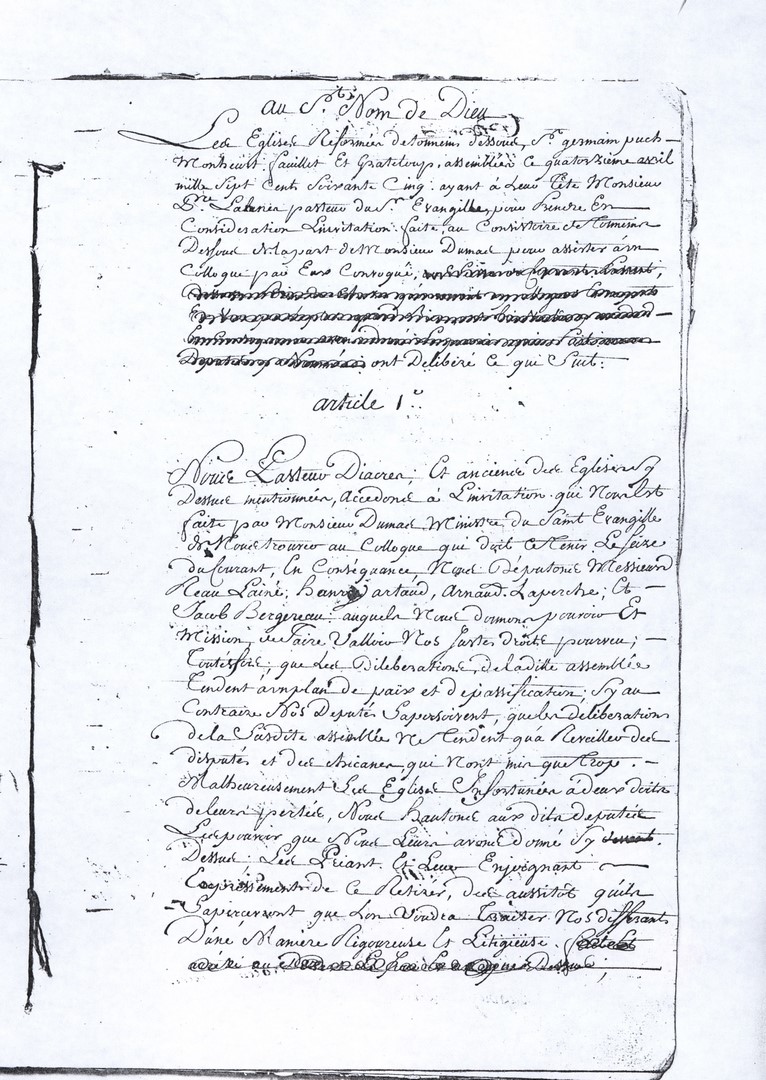 au St. Nom de Dieu
Les Eglises Reformées de tonneins dessous, St. germain puch
Monheurt, fauillet Et Grateloup, assemblées ce quatorzieme avril
mille Sept Cents Soixante Cinq: ayant à Leur Tête Monsieur
pasteur du St. Evangille, pour Prendre En
Consideration Linvitation faite au Consistoire de Tonneins
Dessous de la part de Monsieur Dumas pour assister à un
Colloque par Eux Convoqué,
ont Delibéré Ce qui Suit:
article 1er
Nous Pasteur Diacres, Et anciens des Eglises Sy
Dessus mentionnées, accedons à L'invitation qui Nous Est
faite par Monsieur Dumas Ministre du Saint Evangille
de Nous trouver au Colloque qui doit Se tenir Le seize
du Courant, En Conséquance Nous Deputons Messieurs
Reau Lainé, henry Lartaud, Arnaud Laperche, Et
Jacob Bergereau auquels Nous donnons pouvoir Et
Mission, de Faire Valloir Nos Justes droits pourveu;
Toutesfois, que Les Deliberations, de ladite assemblée
Tendent à un plan de paix et de passification; Sy au
Contraire Nos Deputés Sapersoivent, que les deliberations
de la Susdite assemblée Ne Tendent qu'a Reveiller des
disputes et des chicanes qui N'ont mis que trop.
Malheureusement Les Eglises Infortunées à deux doits
de leurs pertes, Nous hautons aux dits deputés
Les pouvoir que Nous Leurs avons donné Sy
Dessus: Les Priant Et Leur Enjoignant
Expressement de Ce Retirer, des aussitôt qu'ils
Sapercevront que Lon Voudra Traiter Nos differants
D'une Maniere Rigoureuse Et Litigieuse.